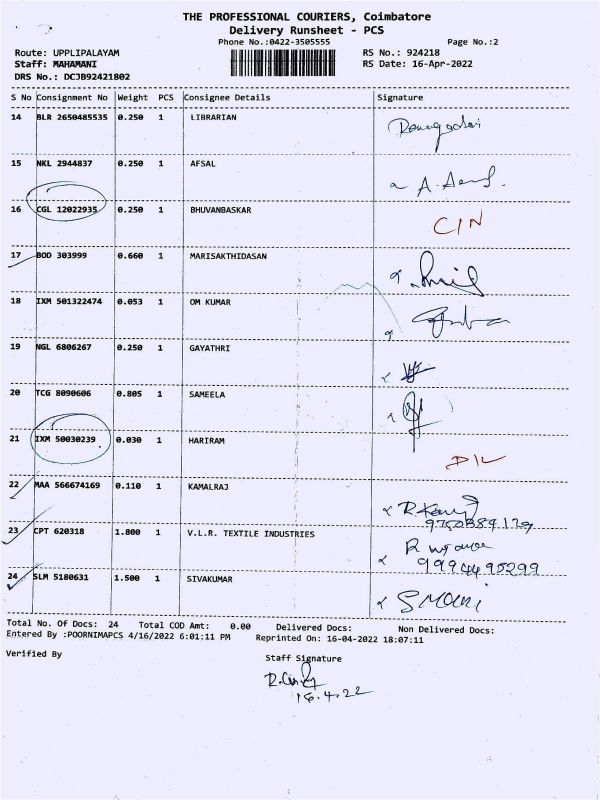 THE PROFESSIONAL COURIERS, Coimbatore
Delivery Runsheet - PCS
Phone No.:0422-3505555
Page No.:2
Route: UPPLIPALAYAM
RS No.: 924218
Staff: MAHAMANI
RS Date: 16-Apr-2022
DRS No.: DCJB92421802
S No Consignment No Weight PCS Consignee Details Signature
14 BLR 2650485535 0.250 1 LIBRARIAN
15 NKL 2944837 0.250 1 AFSAL
16 CGL 12022935 0.250 1 BHUVANBASKAR CIN
17 BOD 303999 0.660 1 MARISAKTHIDASAN
18 IXM 501322474 0.053 1 OM KUMAR
19 NGL 6806267 0.250 1 GAYATHRI
20 TCG 8090606 0.805 1 SAMEELA
21 IXM 50030239 0.030 1 HARIRAM D/L
22 MAA 566674169 0.110 1 KAMALRAJ
23 CPT 620318 1.800 1 V.L.R. TEXTILE INDUSTRIES
24 SLM 5180631 1.500 1 SIVAKUMAR
Total No. Of Docs: 24 Total COD Amt: 0.00 Delivered Docs: Non Delivered Docs:
Entered By :POORNIMAPCS 4/16/2022 6:01:11 PM Reprinted On: 16-04-2022 18:07:11
Verified By Staff Signature
16.4.22